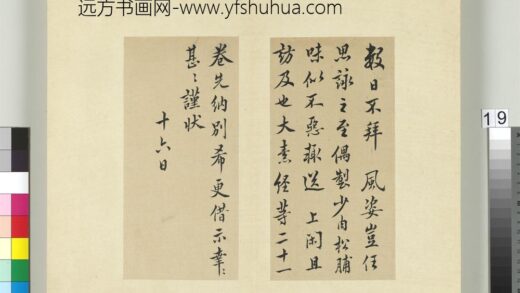 远方书画网-www.yfshuhua.com
數日不拜 風姿豈任
思詠之至偶製少肉松脯
味似不惡輙送 上閑且
訪及也大素经等二十一
卷先納别希更借示幸〻
甚〻謹状
十六日
19